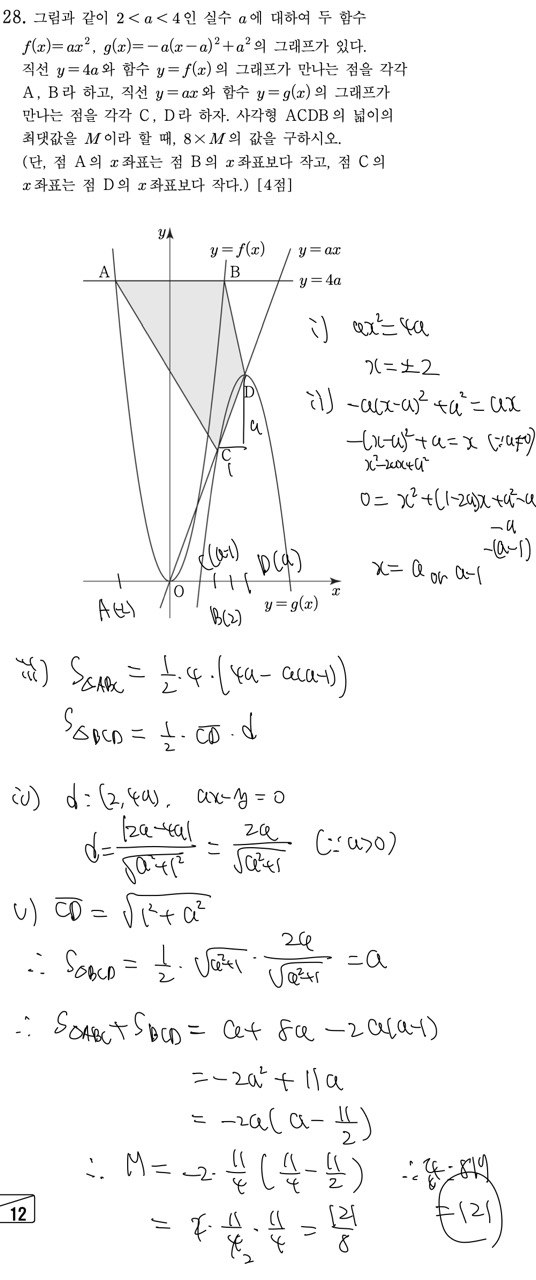 28. 그림과 같이 2 < a < 4인 실수 a에 대하여 두 함수
f(x)=ax², g(x)=−a(x−a)²+a²의 그래프가 있다.
직선 y=4a와 함수 y=f(x)의 그래프가 만나는 점을 각각
A, B라 하고, 직선 y=ax와 함수 y=g(x)의 그래프가
만나는 점을 각각 C, D라 하자. 사각형 ACDB의 넓이의
최댓값을 M이라 할 때, 8×M의 값을 구하시오.
(단, 점 A의 x좌표는 점 B의 x좌표보다 작고, 점 C의
x좌표는 점 D의 x좌표보다 작다.) [4점]
y
y=f(x)
y=ax
A
B
y=4a
D
a
C
1
i) ax²=4a
x=±2
ii) −a(x−a)²+a²=ax
−(x−a)²+a=x (∵a≠0)
x²−2ax+a²
0=x²+(1−2a)x+a²−a
−a
−(a−1)
x=a or a−1
C(a-1)
D(a)
A(-2)
O
B(2)
y=g(x)
x
iii) S△ABC = 1/2·4·(4a−a(a−1))
S△BCD = 1/2·CD·d
iv) d:(2,4a), ax−y=0
d=|2a−4a|/√(a²+1²) = 2a/√(a²+1) (∵a>0)
v) CD = √(1²+a²)
∴ S△BCD = 1/2·√(a²+1)·2a/√(a²+1) = a
∴ S△ABC+S△BCD = a+8a−2a(a−1)
=−2a²+11a
=−2a(a−11/2)
∴ M=−2·11/4(11/4−11/2)
=2·11/4·11/4=121/8
=121
12